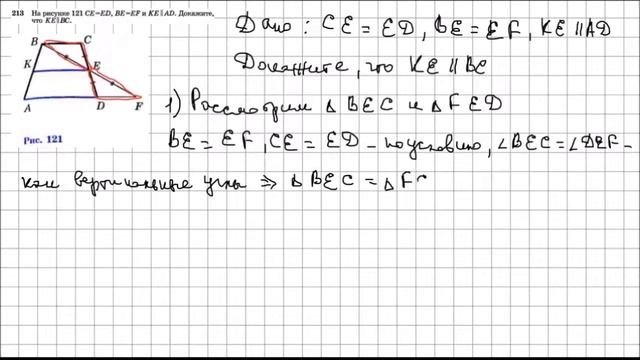 213 На рисунке 121 CE=ED, BE=EF и KE∥AD. Докажите,
что KE∥BC.
B
C
K
E
A
D
F
Рис. 121
Дано: CE = ED, BE = EF, KE ∥ AD
Докажите, что KE ∥ BC
1) Рассмотрим △ BEC и △ FED
BE = EF, CE = ED - по условию, ∠BEC = ∠DEF -
как вертикальные углы ⇒ △ BEC = △ F